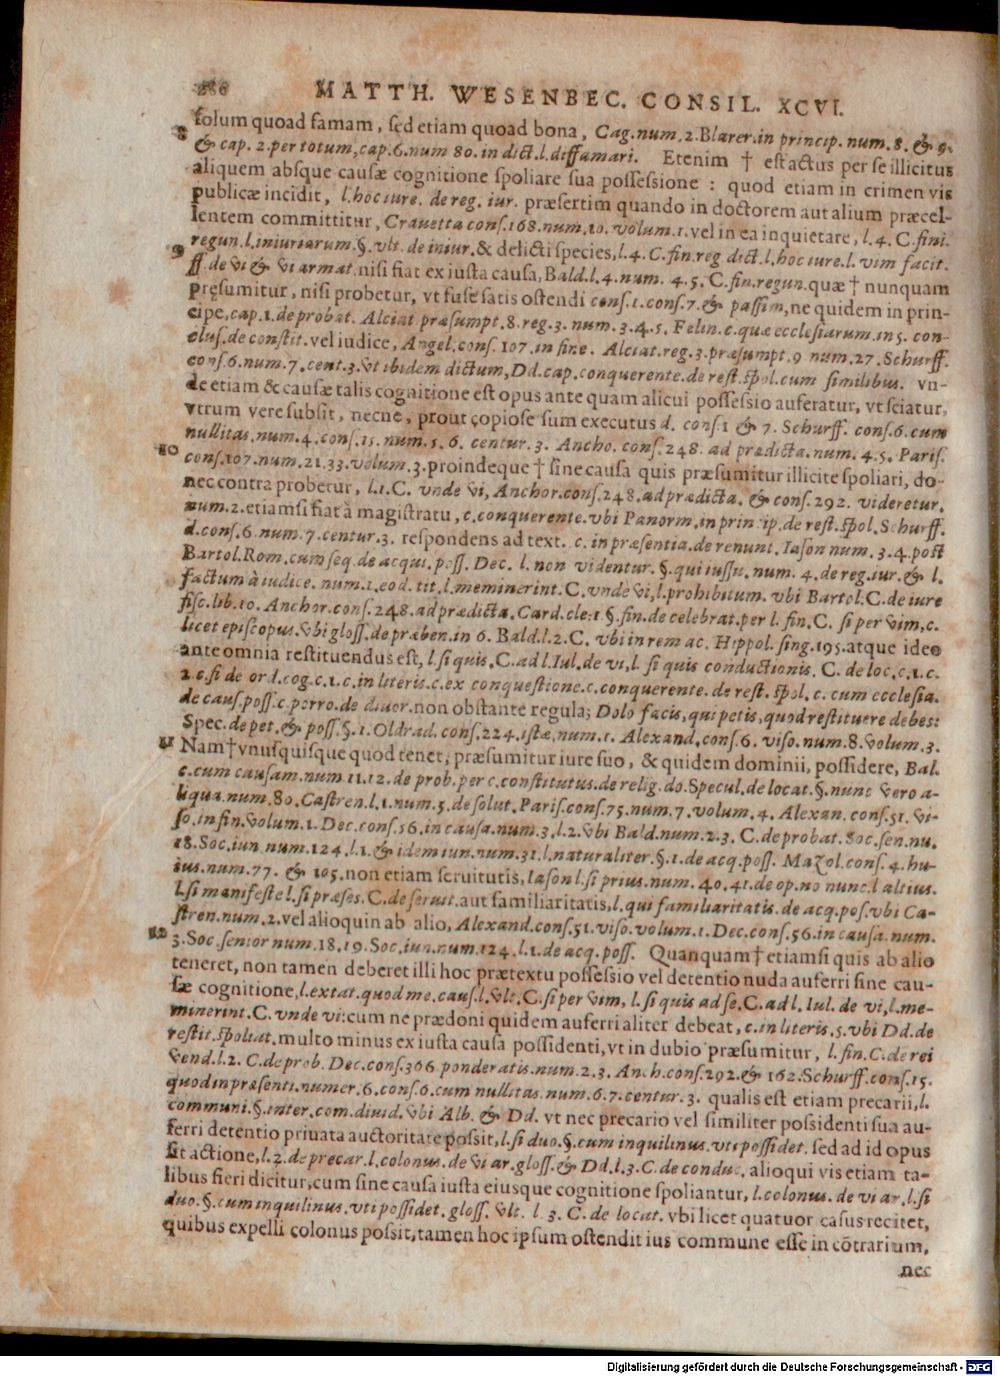 286 MATTH. WESENBEC. CONSIL. XCVI.
solum quoad famam, sed etiam quoad bona, Cag. num. 2. Blarer. in princip. num. 8. & 9.
8 & cap. 2. per totum, cap. 6. num 80. in dict. l. diffamari. Etenim † est actus per se illicitus
aliquem absque causæ cognitione spoliare sua possessione : quod etiam in crimen vis
publicæ incidit, l. hoc iure. de reg. iur. præsertim quando in doctorem aut alium præcel-
lentem committitur, Crauetta cons. 168. num. 10. volum. 1. vel in ea inquietare, l. 4. C. fini.
regun. l. iniuriarum. §. vlt. de iniur. & delicti species, l. 4. C. fin. reg dict. l. hoc iure. l. vim facit.
9 ff. de vi & vi armat. nisi fiat ex iusta causa, Bald. l. 4. num. 4. 5. C. fin. regun. quæ † nunquam
præsumitur, nisi probetur, vt fuse satis ostendi cons. 1. cons. 7. & passim, ne quidem in prin-
cipe, cap. 1. de probat. Alciat præsumpt. 8. reg. 3. num. 3. 4. 5. Felin. c. quæ ecclesiarum. in 5. con-
clus. de constit. vel iudice, Angel. cons. 107. in fine. Alciat. reg. 3. præsumpt. 9 num. 27. Schurff.
cons. 6. num. 7. cent. 3. vt ibidem dictum, Dd. cap. conquerente. de rest. spol. cum similibus. vn-
de etiam & causæ talis cognitione est opus ante quam alicui possessio auferatur, vt sciatur,
vtrum vere subsit, necne, prout copiose sum executus d. cons. 1 & 7. Schurff. cons. 6. cum
nullitas. num. 4. cons. 15. num. 5. 6. centur. 3. Ancho. cons. 248. ad prædicta. num. 4. 5. Paris.
10 cons. 107. num. 21. 33. volum. 3. proindeque † sine causa quis præsumitur illicite spoliari, do-
nec contra probetur, l. 1. C. vnde vi, Anchor. cons. 248. ad prædicta. & cons. 292. videretur.
num. 2. etiamsi fiat à magistratu, c. conquerente. vbi Panorm. in princip. de rest. spol. Schurff.
d. cons. 6. num. 7. centur. 3. respondens ad text. c. in præsentia. de renunt. Iason num. 3. 4. post
Bartol. Rom. cum seq. de acqui. poss. Dec. l. non videntur. §. qui iussu. num. 4. de reg. iur. & l.
factum à iudice. num. 1. eod. tit. l. meminerint. C. vnde vi, l. prohibitum. vbi Bartol. C. de iure
fisc. lib. 10. Anchor. cons. 248. ad prædicta. Card. cle. 1 §. fin. de celebrat. per l. fin. C. si per vim, c.
licet episcopus. vbi gloss. de præben. in 6. Bald. l. 2. C. vbi in rem ac. Hippol. sing. 195. atque ideo
ante omnia restituendus est, l. si quis. C. ad l. Iul. de vi, l. si quis conductionis. C. de loc. c. 1. c.
2. c. si de ord. cog. c. 1. c. in literis. c. ex conquestione. c. conquerente. de rest. spol. c. cum ecclesia.
de caus. poss. c. porro. de diuor. non obstante regula; Dolo facis, qui petis, quod restituere debes:
Spec. de pet. & poss. §. 1. Oldrad. cons. 224. istæ. num. 1. Alexand. cons. 6. viso. num. 8. volum. 3.
11 Nam † vnusquisque quod tenet, præsumitur iure suo, & quidem dominii, possidere, Bal.
c. cum causam. num 11. 12. de prob. per c. constitutus. de relig. do. Specul. de locat. §. nunc vero a-
liqua. num. 80. Castren. l. 1. num. 5. de solut. Paris. cons. 75. num. 7. volum. 4. Alexan. cons. 51. vi-
so. in fin. volum. 1. Dec. cons. 56. in causa. num. 3. l. 2. vbi Bald. num. 2. 3. C. de probat. Soc. sen. nu.
18. Soc. iun. num. 124. l. 1. & idem iun. num. 31. l. naturaliter. §. 1. de acq. poss. Mazol. cons. 4. hu-
ius. num. 77. & 105. non etiam seruitutis, Iason l. si prius. num. 40. 41. de op. no nunc. l altius.
l. si manifeste l. si præses. C. de seruit. aut familiaritatis, l. qui familiaritatis. de acq. pos. vbi Ca-
stren. num. 2. vel alioquin ab alio, Alexand. cons. 51. viso. volum. 1. Dec. cons. 56. in causa. num.
12 3. Soc. senior num. 18. 19. Soc. iun. num. 124. l. 1. de acq. poss. Quanquam † etiamsi quis ab alio
teneret, non tamen deberet illi hoc prætextu possessio vel detentio nuda auferri sine cau-
sæ cognitione, l. extat. quod me. caus. l. vlt. C. si per vim, l. si quis ad se. C. ad l. Iul. de vi, l. me-
minerint. C. vnde vi: cum ne prædoni quidem auferri aliter debeat, c. in literis. 5. vbi Dd. de
restit. spoliat. multo minus ex iusta causa possidenti, vt in dubio præsumitur, l. fin. C. de rei
vend. l. 2. C. de prob. Dec. cons. 366 ponderatis. num. 2. 3. Anch. cons. 292. & 162. Schurff. cons. 15.
quod in præsenti. numer. 6. cons. 6. cum nullitas. num. 6. 7. centur. 3. qualis est etiam precarii, l.
communi. §. inter. com. diuid. vbi Alb. & Dd. vt nec precario vel similiter possidenti sua au-
ferri detentio priuata auctoritate possit, l. si duo. §. cum inquilinus. vti possidet. sed ad id opus
sit actione, l. 2. de precar. l. colonus. de vi ar. gloss. & Dd. l. 3. C. de conduc. alioqui vis etiam ta-
libus fieri dicitur, cum sine causa iusta eiusque cognitione spoliantur, l. colonus. de vi ar. l. si
duo. §. cum inquilinus. vti possidet. gloss. vlt. l. 3. C. de locat. vbi licet quatuor casus recitet,
quibus expelli colonus possit, tamen hoc ipsum ostendit ius commune esse in cõtrarium,
nec
Digitalisierung gefördert durch die Deutsche Forschungsgemeinschaft - DFG